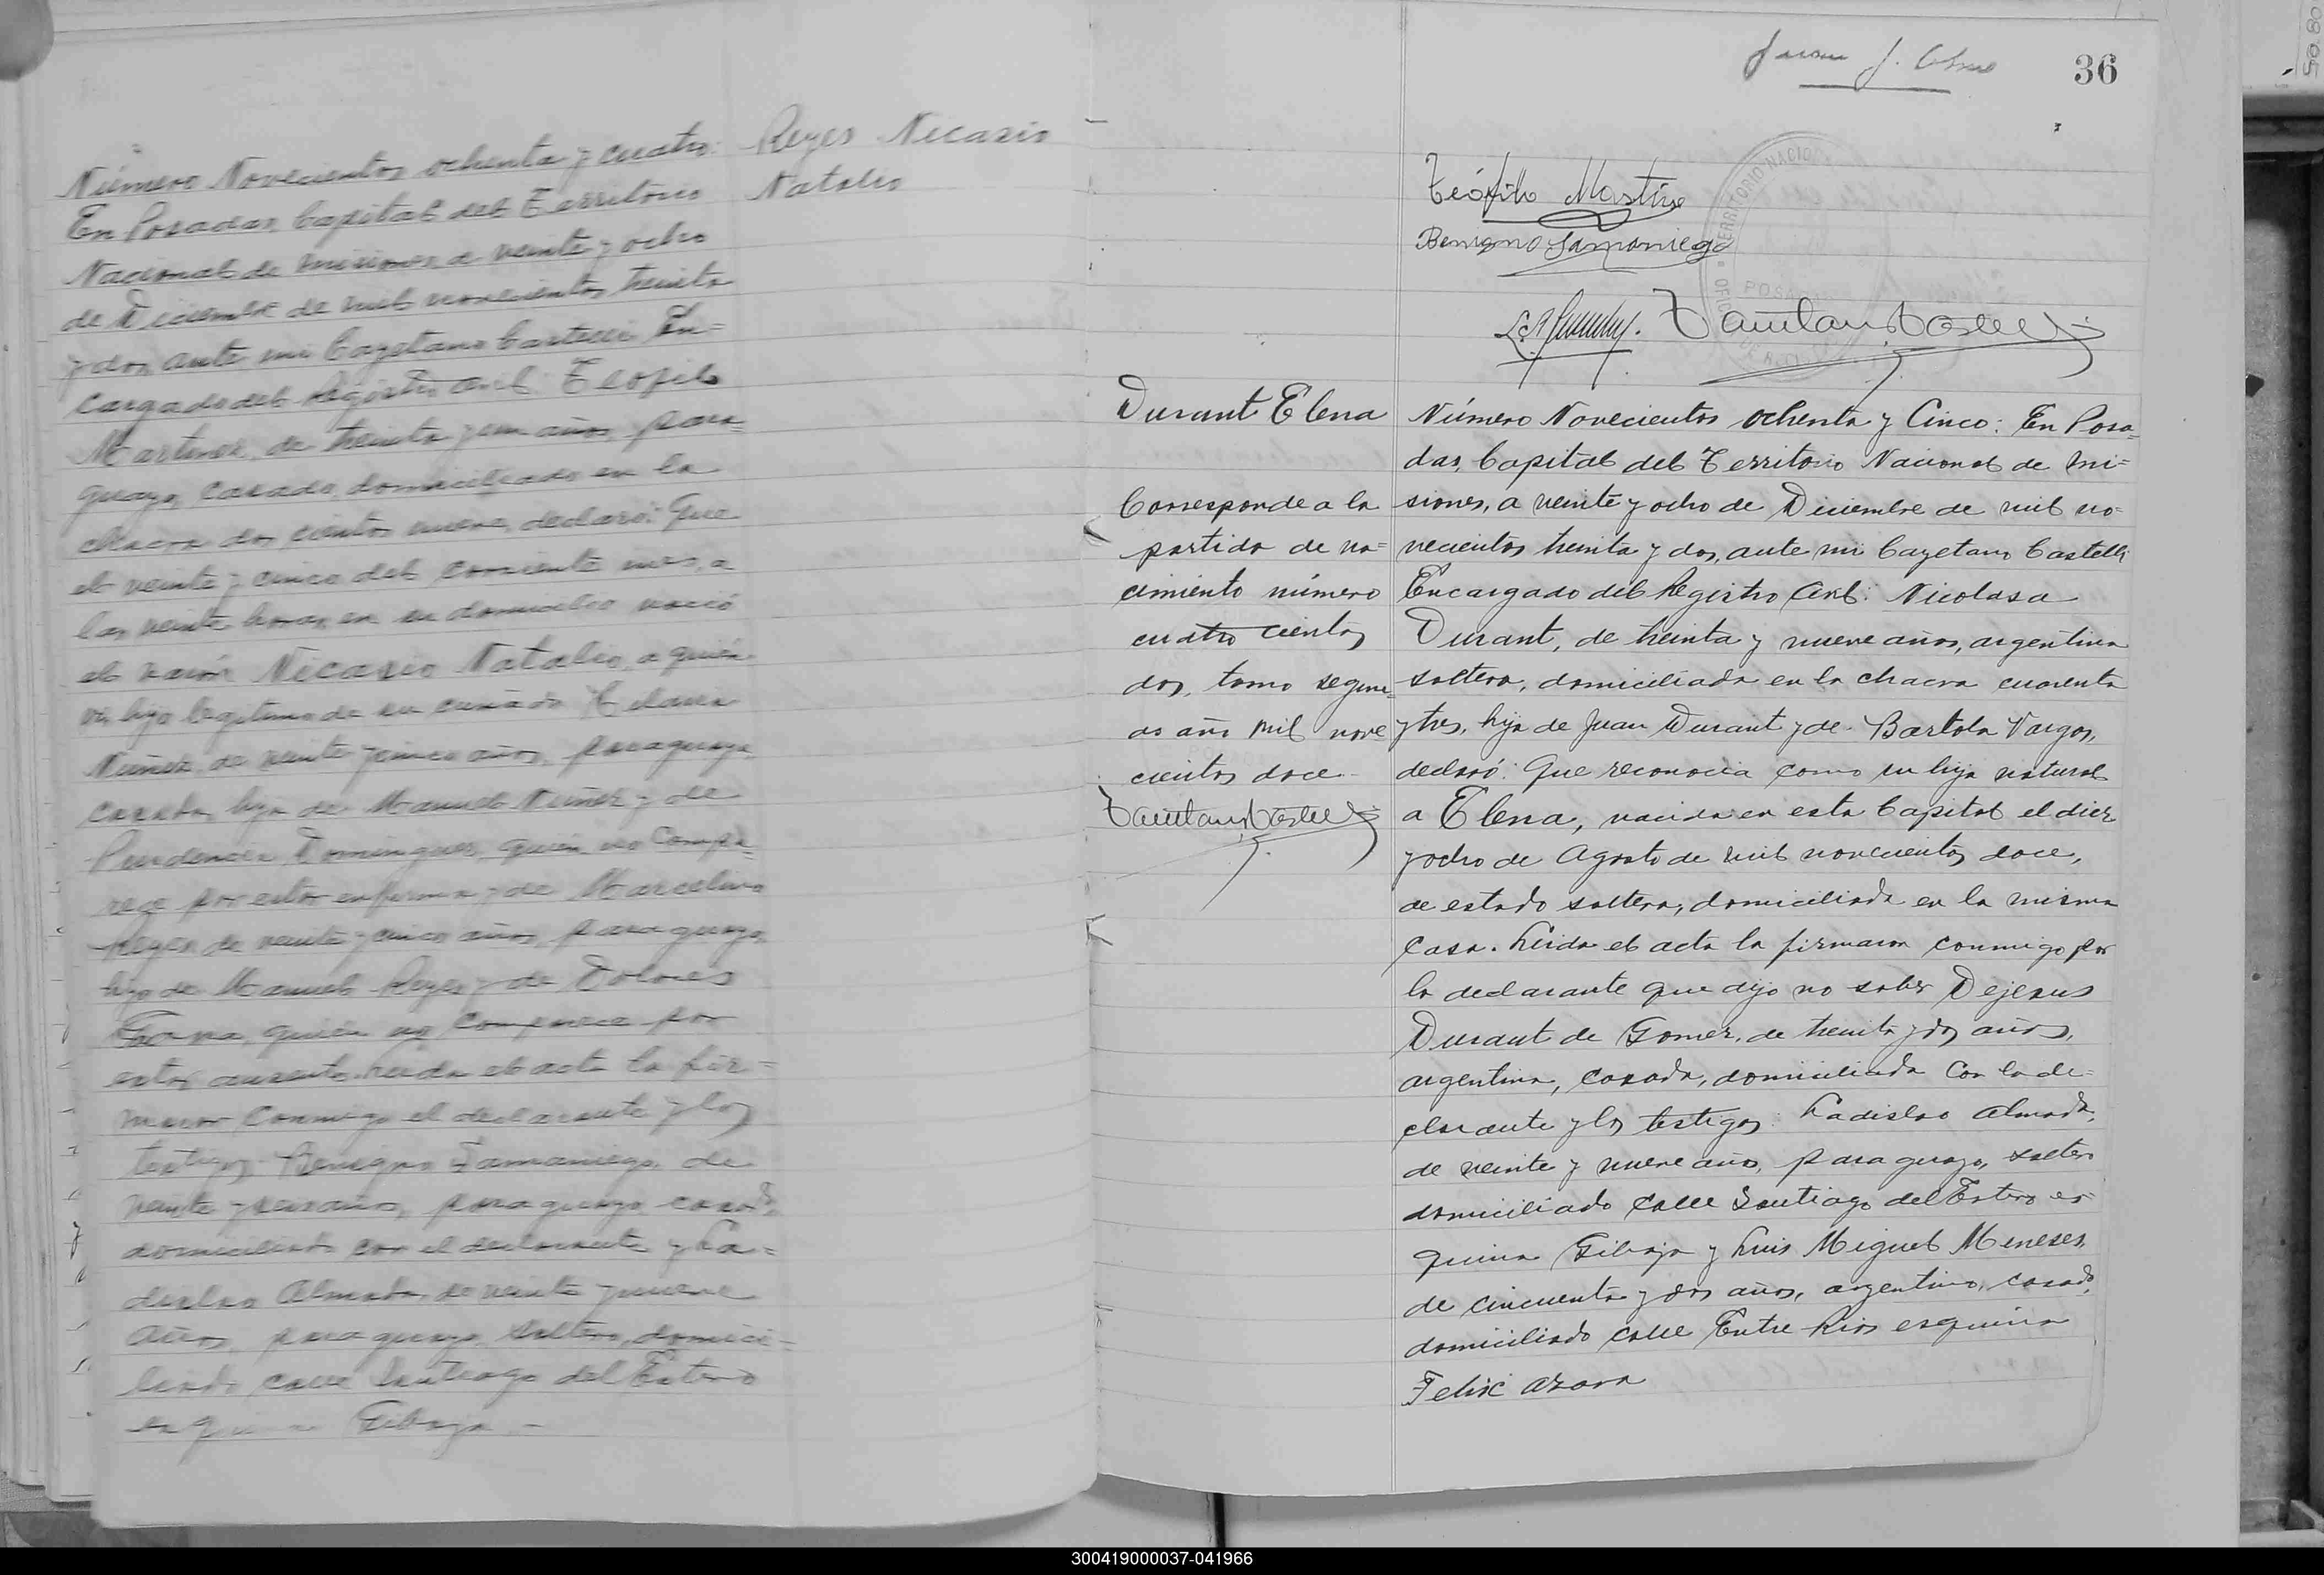 Número Novecientos ochenta y cuatro:
En Posadas, Capital del Territorio
Nacional de Misiones, a veinte y ocho
de Diciembre de mil novecientos treinta
y dos, ante mi Cayetano Castelli En=
cargado del Registro Civil: Teofilo
Martinez, de treinta y un años, para=
guayo, casado, domiciliado en la
chacra dos cientos nueve, declaró: Que
el veinte y cinco del corriente mes, a
las veinte horas, en su domicilio nació
el varón Nicasio Natalio, a quién
vi, hijo legitimo de su cuñada
Nuñez, de veinte y cinco años, paraguaya
casada, hija de Manuel Nuñez y de
Prudencia Dominguez, quién no compa=
rece por estar enferma y de Marcelino
Reyes, de veinte y cinco años, paraguayo,
hijo de Manuel Reyes y de Dolores
quién no comparece por
estar ausente. Leida el acta la fir=
maron conmigo el declarante y los
testigos: Benigno Samaniego, de
veinte y seis años, paraguayo casado,
domiciliado con el declarante y La=
dislao Almada, de veinte y nueve
años, paraguayo, soltero, domici=
liado calle Santiago del Estero
esquina Gibaja.-
Reyes Nicasio
Natalio
36
Teófilo Martinez
Benigno Samaniego
TERRITORIO NACIO
POSADAS
Durant Elena
Corresponde a la
partida de na=
cimiento número
cuatro cientos
dos, tomo segun=
do año mil nove
cientos doce-
Número Novecientos ochenta y Cinco: En Posa=
das, Capital del Territorio Nacional de Mi=
siones, a veinte y ocho de Diciembre de mil no=
vecientos treinta y dos, ante mi Cayetano Castelli
Encargado del Registro Civil: Nicolasa
Durant, de treinta y nueve años, argentina
soltera, domiciliada en la chacra cuarenta
y tres, hija de Juan Durant y de Bartola Vargas,
declaró: Que reconocia como su hija natural
a Elena, nacida en esta Capital el diez
y ocho de Agosto de mil novecientos doce,
de estado soltera, domiciliada en la misma
casa. Leida el acta la firmaron conmigo por
la declarante que dijo no saber Dejesus
Durant de Gomez, de treinta y dos años,
argentina, casada, domiciliada con la de=
clarante y los testigos: Ladislao Almada,
de veinte y nueve años, paraguayo, soltero
domiciliado calle Santiago del Estero es=
quina Gibaja y Luis Miguel Meneses,
de cincuenta y dos años, argentino, casado,
domiciliado calle Entre Rios esquina
Felix Azara
300419000037-041966